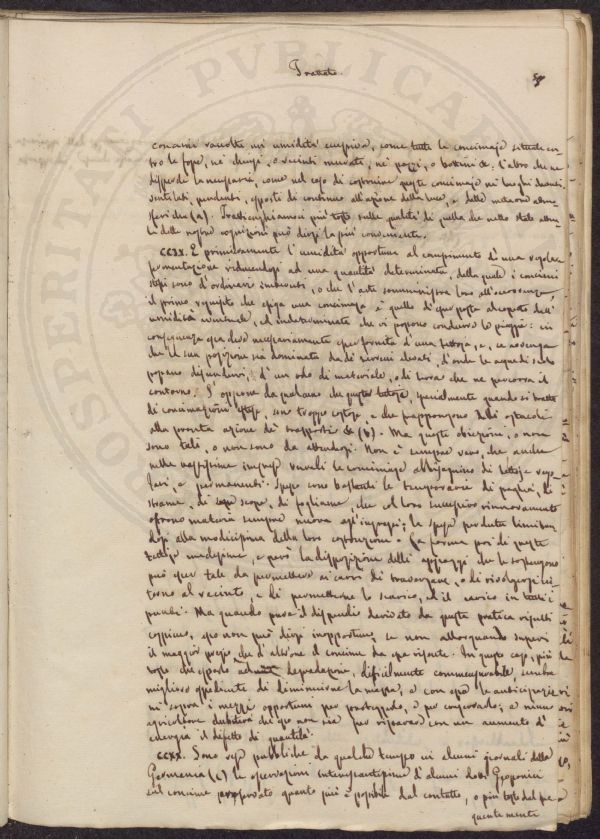 PROSPERITATI PVBLICAE
Trattato.
concimi raccolti un umidità eccessiva, come tutte le concimaje situate en-
tro le fosse, nè chiusi, o recinti murati, nè pozzi, o bottini &: l'altro che ne
disperde la necessaria, come nel caso di costruire queste concimaje nei luoghi
ventilati, pendenti, esposti di continuo all'azione della luce, e delle meteore atmo-
sferiche (a). più tosto sulle qualità di quella che nello stato attua-
le delle nostre cognizioni può dirsi la più conveniente.
CCIX. E primieramente l'umidità opportuna al compimento d'una regolare
fermentazione riducendosi ad una quantità determinata, della quale i concimi
stessi sono d'ordinario, o che l'arte somministra loro all'occorrenza,
il primo requisito che esiga una concimaja è quello d'esser posta al coperto dell'
umidità eventuale, ed indeterminata che vi possono condurre le piogge: in
conseguenza essa deve necessariamente esser fornita d'una tettoja, e, se avvenga
che la sua posizione sia dominata da dei terreni elevati, d'onde le acque
possano, d'un orlo di materiale, o di terra che ne percorra il
contorno. S'oppone da qualcuno che queste tettoje, specialmente quando si tratta
di concimazioni estese, sono troppo costose, e che frappongono delli ostacoli
alla pronta azione dei trasporti & (b). Ma queste obiezioni, o non
sono tali, o non sono da attendersi. Non è sempre vero, che anche
nelle vastissime imprese rurali le concimaje abbisognino di tettoje rego-
lari, e permanenti. Spesso sono bastanti le temporarie di paglia, di
strame, di scope, di fogliame, che col loro successivo rinnovamento
offrono materia sempre nuova agl'ingrassi; la spesa perduta limitan-
dosi alla modicissima della loro costruzione. La forma poi di queste
tettoje medesime, e però la disposizione delli appoggi che le sostengono
può esser tale da permettere ai carri di traversare, o di rivolgersi in-
torno al recinto, e di permetterne lo scarico, ed il carico in tutti i
punti. Ma quando pure il dispendio derivato da questa pratica risulti
, esso non può dirsi inopportuno, se non allorquando superi
il maggior pregio che d'altronde il concime da essa risente. In questo caso, più
tosto che esporlo ad una degradazione, difficilmente commensurabile, sarebbe
migliore espediente di diminuirne la massa, e con ciò le anticipazioni
i mezzi opportuni per proteggerlo, e per conservarlo; e niun
agricoltore dubiterà che ciò non sia per ripararsi con un aumento d'
energia il difetto di quantità.
CCXX. Sono rese pubbliche da qualche tempo in alcuni giornali della
Germania (c) le osservazioni d'alcuni dotti Geoponici
sul concime preservato quanto più è possibile dal contatto, o più tosto dal
quentemente